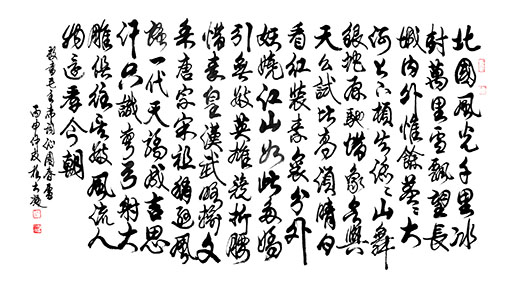 北國風光千里冰
封萬里雪飄望長
城内外惟餘莽々大
河上下頓失滔々山舞
銀蛇原馳蜡象欲與
天公試比高須晴日
看紅裝素裹分外
妖嬈江山如此多嬌
引無數英雄競折腰
惜秦皇漢武略輸文
采唐宗宋祖稍遜風
騷一代天驕成吉思
汗只識彎弓射大
雕俱往矣數風流人
物還看今朝
敬書毛主席詞沁園春雪
丙申仲秋